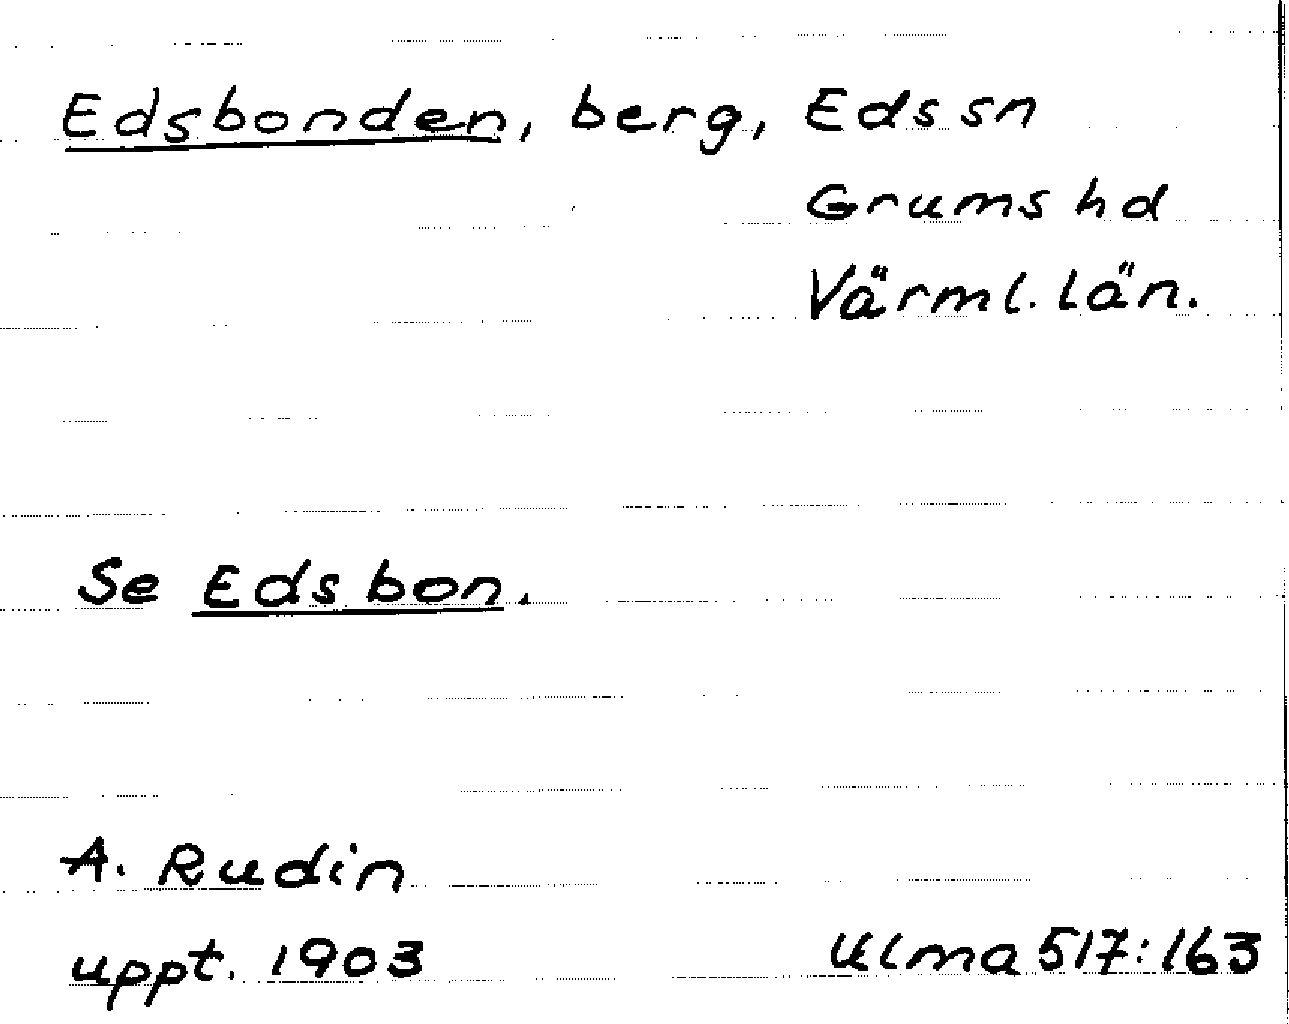 Edsbonden, berg, Eds sn
Grums hd
Värml. län.
Se Edsbon.
A. Rudin
uppt. 1903
Ulma 517:163